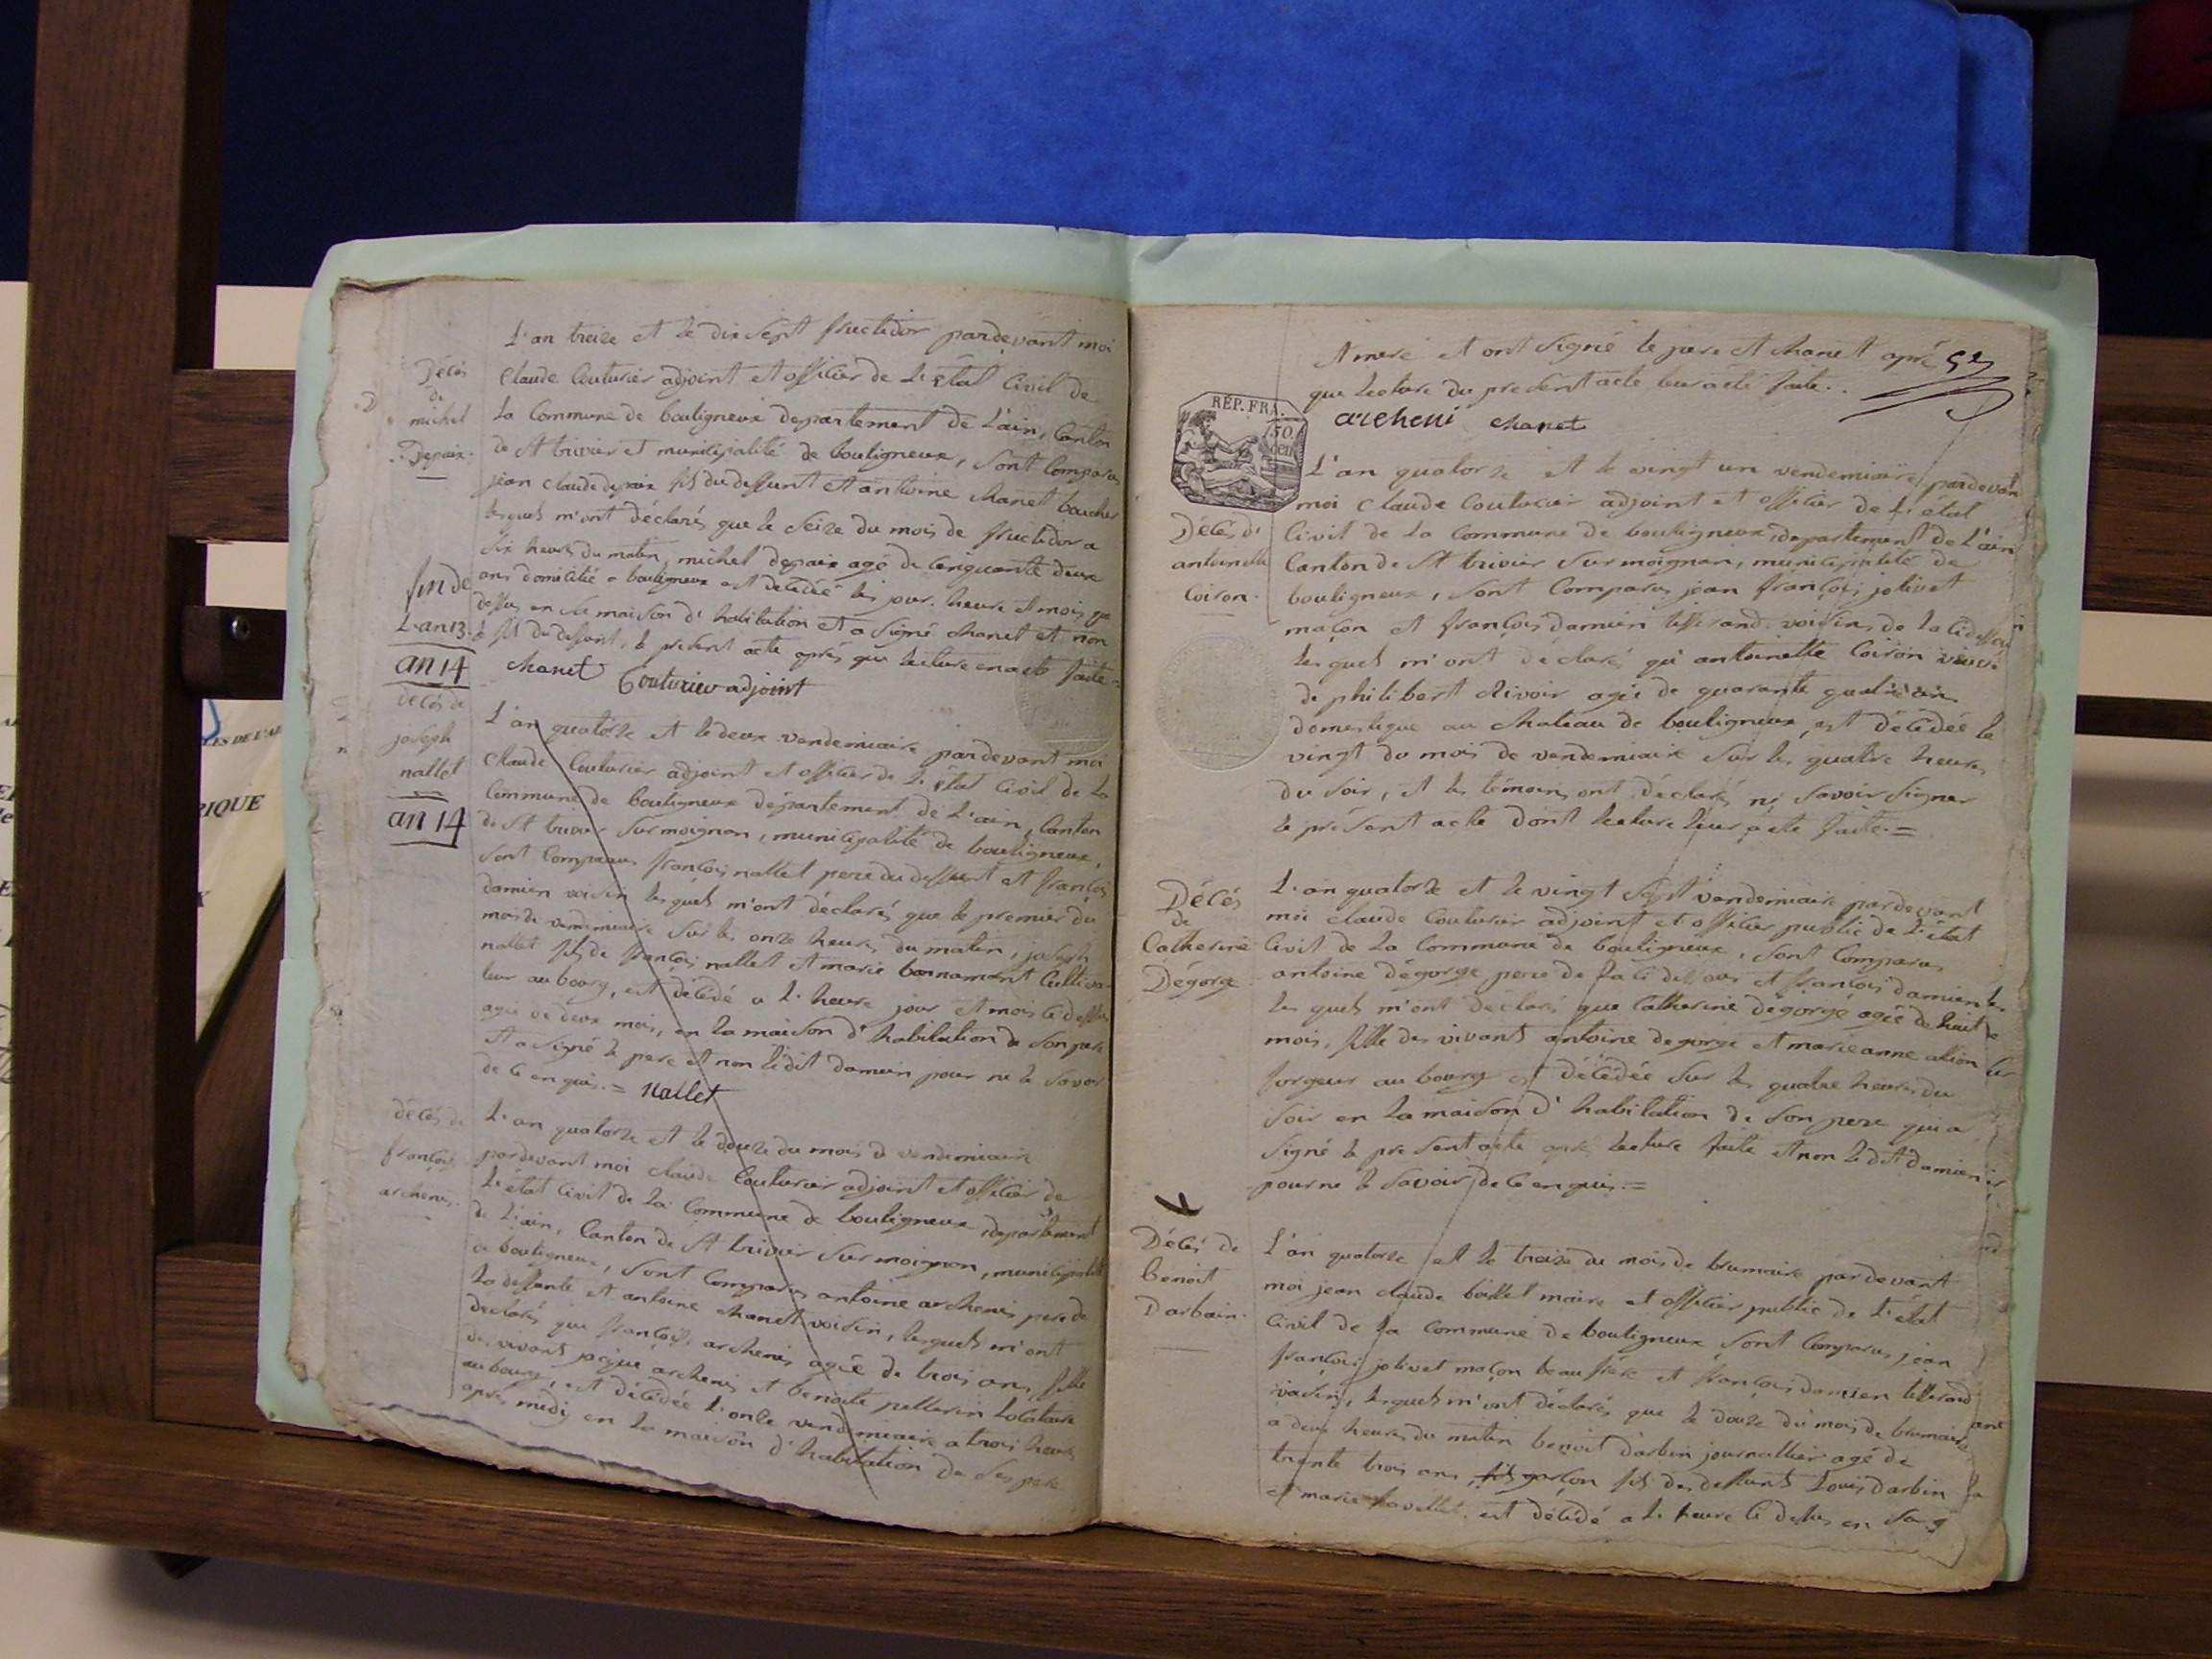 Décès
de
michel
Depaix.
L'an treize et le dix sept fructidor pardevant moi
Claude Couturier adjoint et officier de l'état Civil de
la Commune de bouligneux departement de L'ain, Canton
de St trivier et municipalité de bouligneux, sont Comparus
jean claude depaix fils du deffunt et antoine chanet boucher
lesquels m'ont déclarés que le seize du mois de fructidor a
six heures du matin, michel depaix agé de cinquante deux
ans domicilié a bouligneux est décédé les jour. heure et mois que
dessus en sa maison d'habitation et a signé chanet et non
le fils du deffunt, le present acte après que lecture en a eté faite =
chanet
Couturier adjoint
fin de
L'an 13.
an 14
decés de
joseph
nallet
an 14
L'an quatorze et le deux vendemiaire pardevant moi
Claude Couturier adjoint et officier de l'état Civil de la
Commune de bouligneux département de L'ain, Canton
de St trivier sur moignan, municipalité de bouligneux,
sont Comparus françois nallet pere du deffunt et françois
damien voisin lesquels m'ont déclarés que le premier du
mois de vendemiaire sur les onze heures du matin, joseph
nallet fils de françois nallet et marie bonnamant Cultiva-
teur au bourg, est décédé a l'heure jour et mois ci dessus
agé de deux mois, en la maison d'habitation de son pere
et a signé le pere et non ledit damien pour ne le savoir
de ce enquis. = Nallet
décès de
françoise
archenis.
L'an quatorze et le douze du mois de vendemiaire
pardevant moi claude Couturier adjoint et officier de
l'état Civil de la Commune de bouligneux, departement
de L'ain, Canton de St trivier sur moignan, municipalité
de bouligneux, sont Comparus antoine archenis pere de
la deffunte et antoine chanet voisin, lesquels m'ont
declarés que françoise archenis agée de trois ans, fille
des vivants jacque archenis et benoite pellerin Locataire
au bourg, est décédée l'onze vendemiaire a trois heures
après midy en la maison d'habitation de ses pere
et mere et ont signé le pere et chanet après 52
que lecture du present acte leur a eté faite.
RÉP. FRA.
50
cen
archeni chanet
Décès d'
antoinette
Coiron.
L'an quatorze et le vingt un vendemiaire pardevant
moi Claude Couturier adjoint et officier de l'état
Civil de la Commune de bouligneux departement de L'ain
Canton de St trivier sur moignan, municipalité de
bouligneux, sont Comparus jean françois jolivet
maçon et françois damien tisserand voisins de la ci dessous
lesquels m'ont déclarés qu'antoinette Coiron veuve
de philibert Rivoir agée de quarante quatre ans
domestique au chateau de bouligneux, est décédée le
vingt du mois de vendemiaire sur les quatre heures
du soir, et les témoins ont déclarés ne savoir signer
le présent acte dont lecture leur a eté faite. =
Décès
de
Catherine
Dégorge
L'an quatorze et le vingt sept vendemiaire pardevant
moi claude Couturier adjoint et officier public de l'état
Civil de la Commune de bouligneux, sont Comparus
antoine dégorge pere de la ci dessous et françois damien
lesquels m'ont declarés que Catherine dégorge agée de huit
mois, fille des vivants antoine degorge et marieanne allion
forgeur au bourg est décédée sur les quatre heures du
soir en la maison d'habitation de son pere qui a
signé le present acte après lecture faite et non ledit damien
pour ne le savoir de ce enquis. =
Décès de
benoit
Darbain.
L'an quatorze et le treize du mois de brumaire pardevant
moi jean claude maire et officier public de l'état
Civil de la Commune de bouligneux sont Comparus jean
françois jolivet maçon beau frère et françois damien tisserand
voisin, lesquels m'ont déclarés que le douze du mois de brumaire
a deux heures du matin benoit darbin journallier agé de
trente trois ans, fils des deffunts Louis darbin
et marie est décédé a l'heure ci dessus en sa